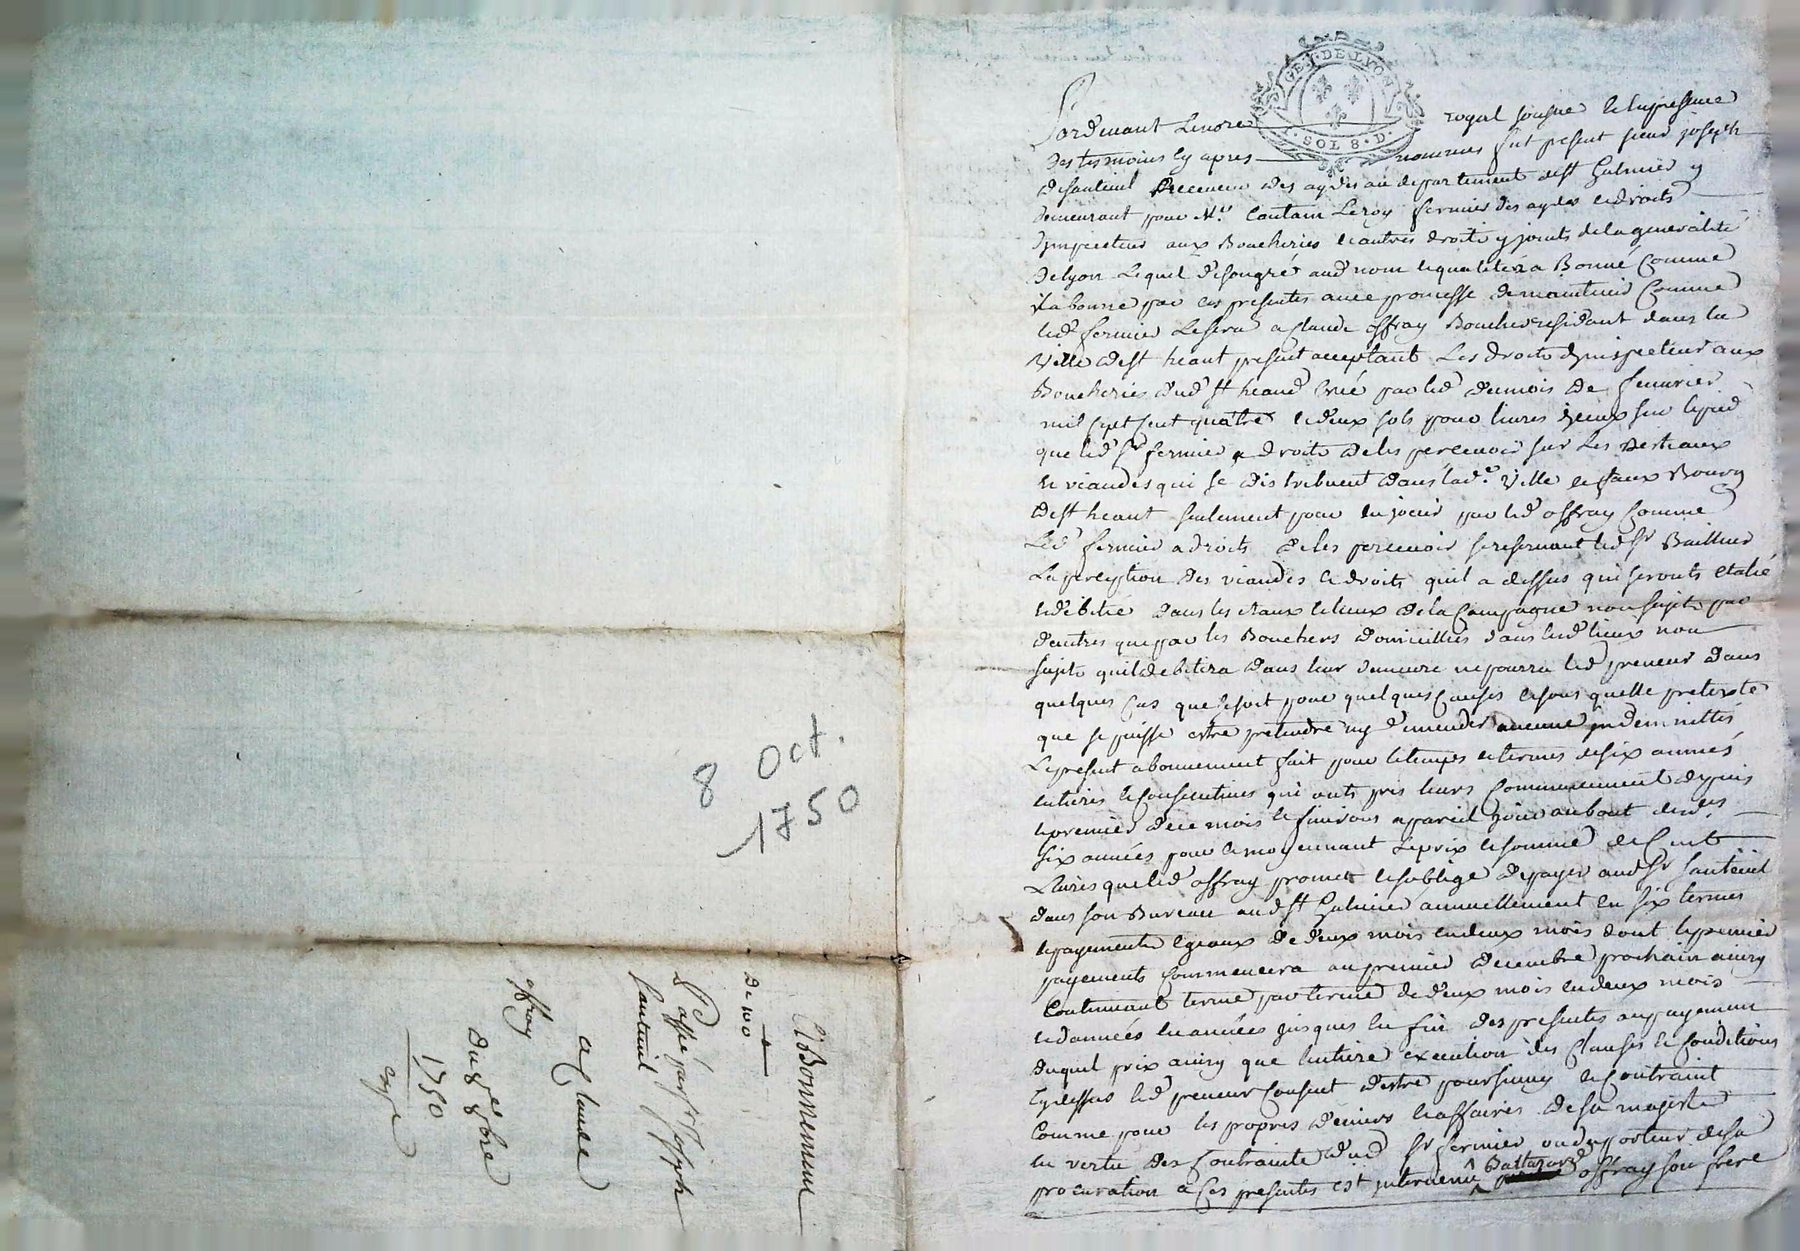 GEN. DE. LYON
SOL 8. D.
Pardevant Lenore royal sousigné et en presence
des tesmoins cy apres nommes fut present sieur joseph
desauteuil Receveur des aydes au departement de st Galmier y
demeurant pour Mr. Cautain Leroy fermier des aydes et droits
dynspecteur aux Boucheries et autres droits y joints de la generalité
de lyon Lequel de son gré aud nom et qualité a Bonné Comme
il abonne par ces presentes avec promesse de maintenir Comme
led fermier Lesera a Claude offray Boucher residant dans la
Ville de st heant present acceptant Les droits dynspecteur aux
Boucheries dud st heand Créé par led du mois de fevrier
mil sept cent quatre et deux sols pour livres yceux sur le pied
que led sr fermier a droits de les percevoir sur Les Bestiaux
et viandes qui se distribuent dans lad.e Ville et faux Bourg
de st heant seulement pour en jouir par led offray Comme
Led fermier a droits de les percevoir se reservant led sr Bailleur
La perception des viandes et droits quil a dessus qui seronts etalé
et debitté dans les et lieux de la Campagne non sujets par
dautres que par les Bouchers domiciliés dans led lieux non
sujets quil debitera dans leur demeure ne pourra led preneur dans
quelques Cas que se soit pour quelques Causes et sous quelle pretexte
que se puisse estre pretendre ny demander aucune jndemnittés
Le present abonnement fait pour le temps et termes de six années
entieres et Consecutives qui onts pris leurs Commencement depuis
le premier de ce mois et finirons a pareil jour au bout desd.
six années pour et moyennant Le prix et somme de Cent
Livres que led offray promet et soblige de payer aud sr sauteuil
dans son Bureau aud st Galmier annuellement en six termes
et payements egeaux de deux mois en deux mois dont le premier
payements Commencera au premier decembre prochain ainsy
Continuant terme par terme de deux mois en deux mois
et dannées en années jusques en fin des presentes au payement
duquel prix ainsy que lentiere execution des Clauses et Conditions
Cy dessus led preneur Consent destre poursuivy et Contraint
Comme pour les propres deniers et affaires de sa majesté
en vertu des Contrainte dud sr fermier ou du porteur de sa
procuration a Ces presentes est jntervenu Baltazard offray son frere
8 Oct.
1750
Abonnement
de 100 #
Passé par sr Joseph
Sauteuil
a Claude
offray
du 8e 8bre
1750